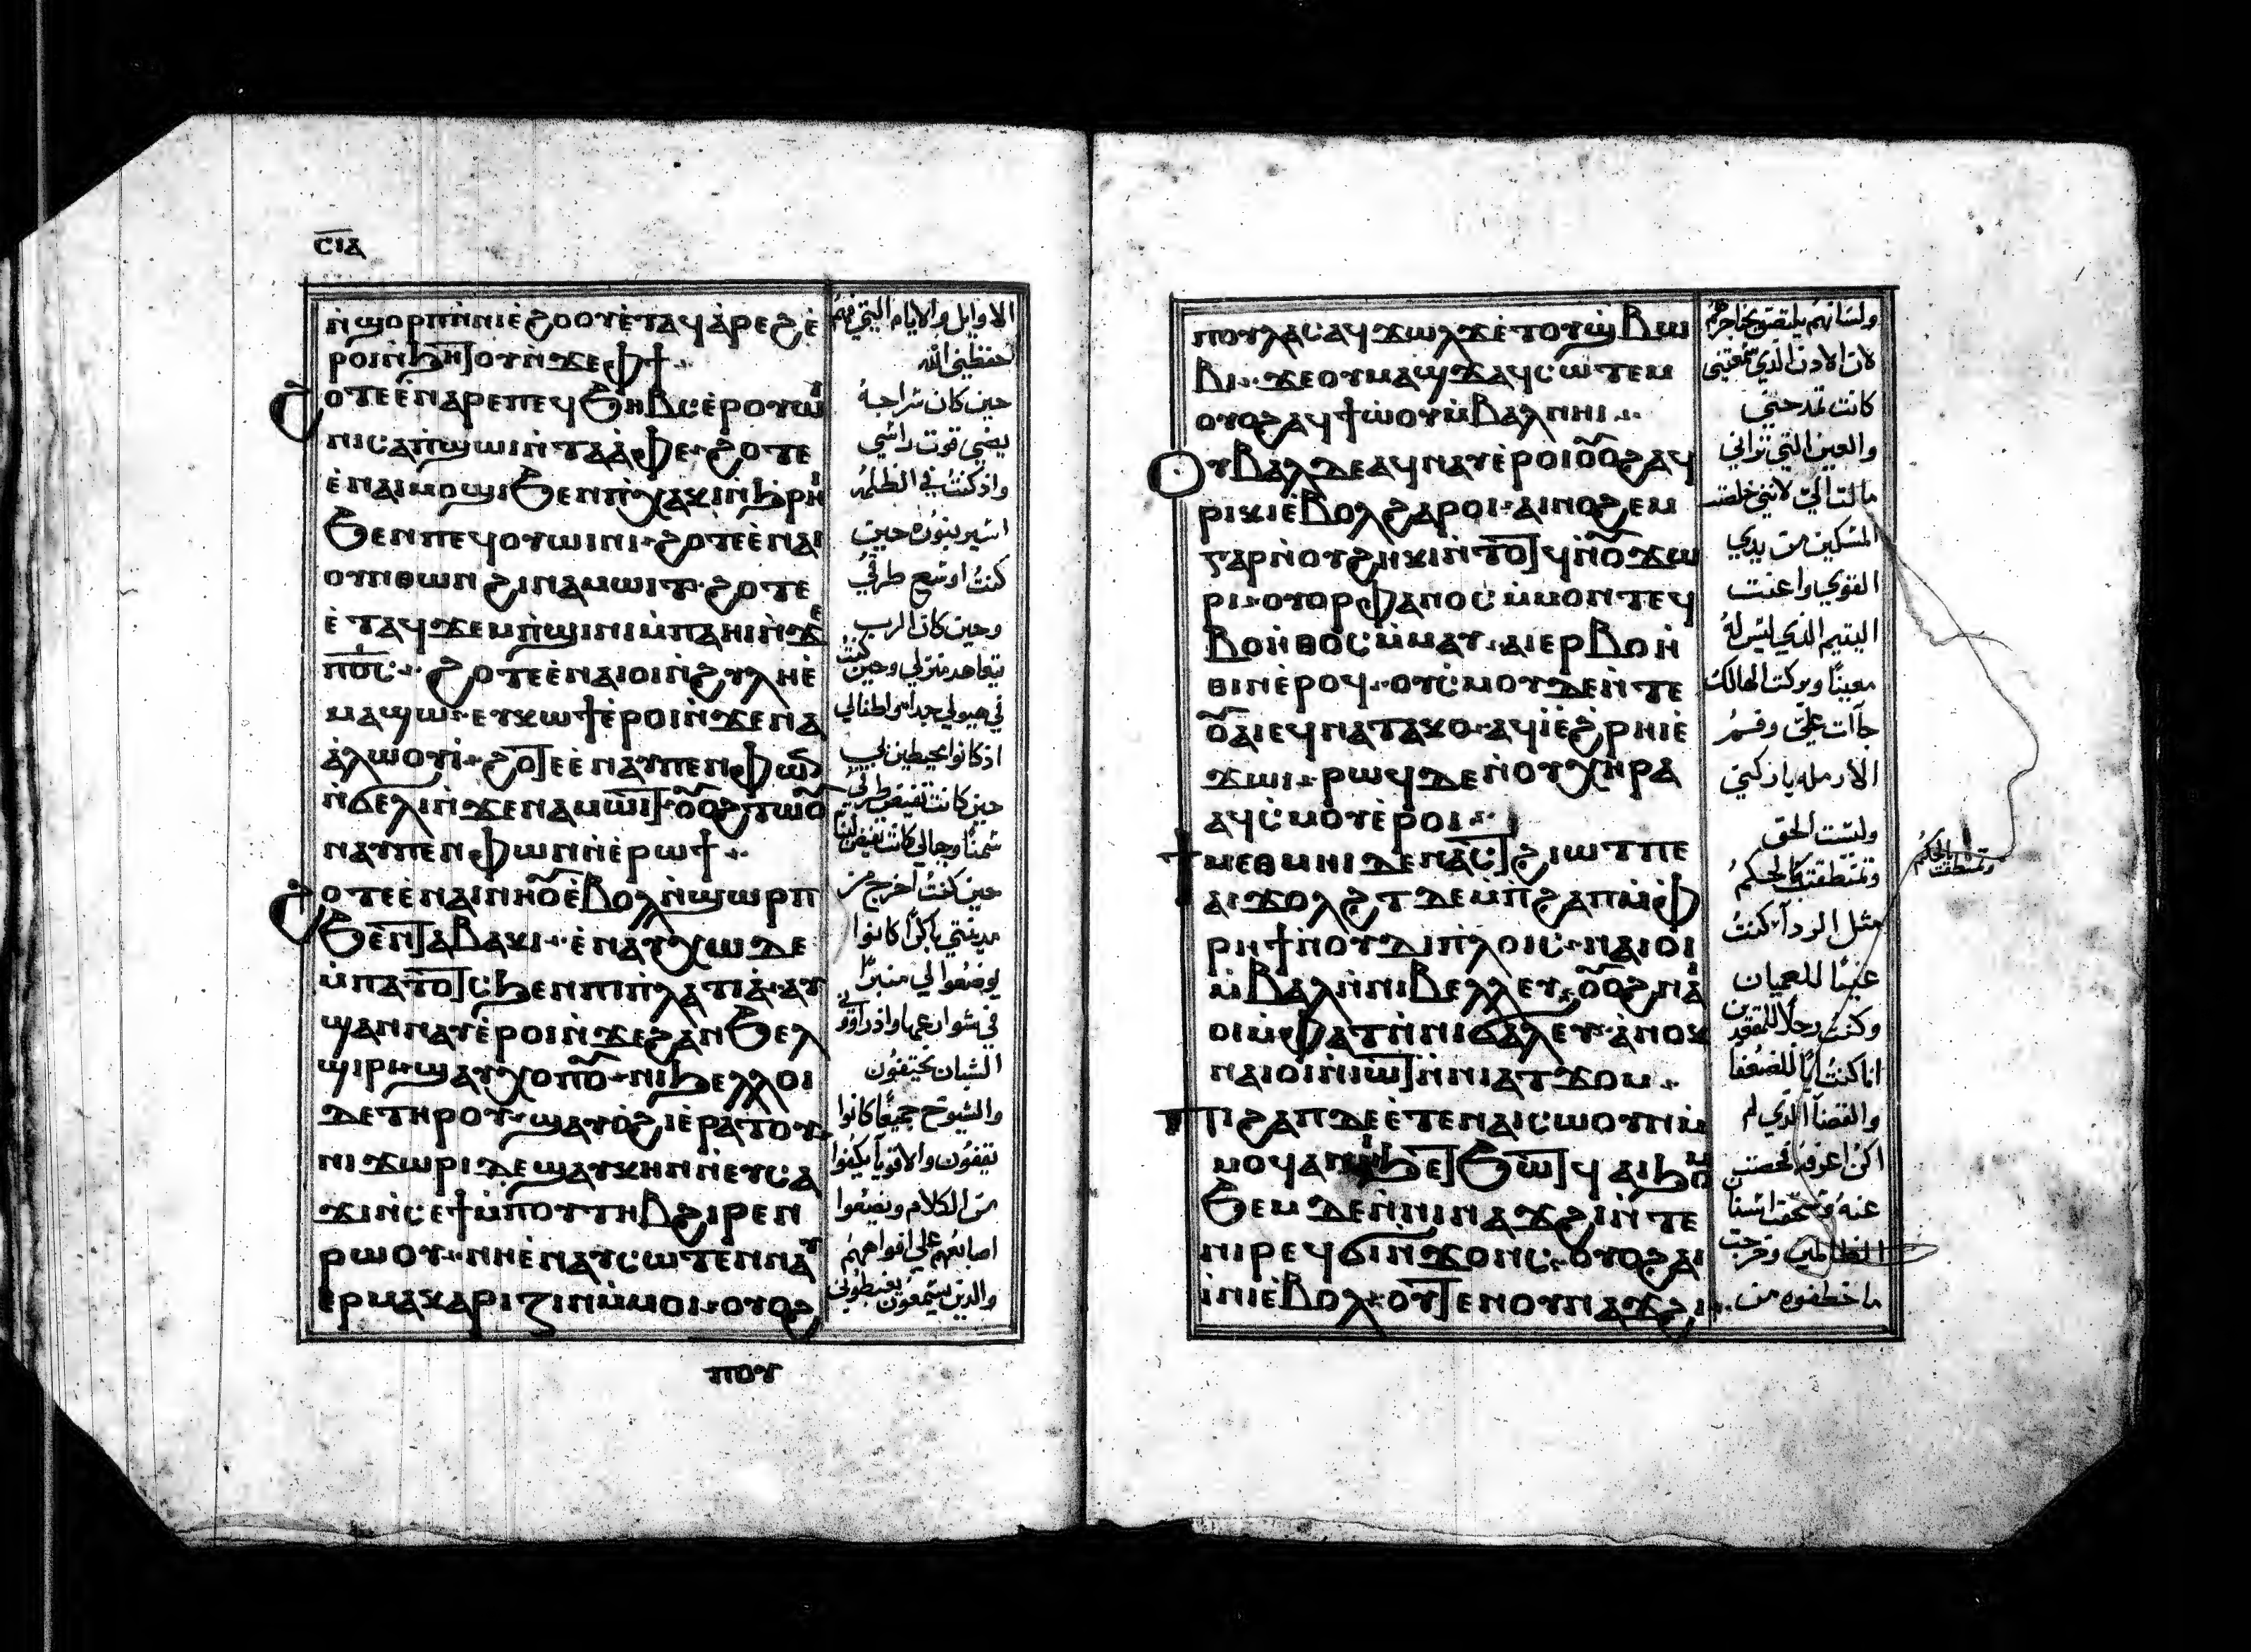 ⲤⲒⲀ
ⲛ̀ϣⲟⲣⲡⲛ̀ⲛⲓⲉ̀ϩⲟⲟⲩⲉ̀ⲧⲁϥⲁ̀ⲣⲉϩⲉ̀
ⲣⲟⲓⲛ̀ϧⲏⲧⲟⲩⲛ̀ϫⲉⲫϯ
ϩⲟⲧⲉⲉ̀ⲛⲁⲣⲉⲡⲉϥϧⲏⲃⲥⲉ̀ⲣⲟⲩⲱⲓ
ⲛⲓⲥⲁⲡ̀ϣⲱⲓⲛ̀ⲧⲁⲁ̀ⲫⲉ ϩⲟⲧⲉ
ⲉ̀ⲛⲁⲓⲙⲟϣⲓϧⲉⲛⲡⲓⲭⲁⲕⲓⲛ̀ϧⲣⲏⲓ
ϧⲉⲛⲡⲉϥⲟⲩⲱⲓⲛⲓ ϩⲟⲧⲉⲉ̀ⲛⲁⲓ
ⲟⲩⲏⲑⲱⲛϩⲓⲛⲁⲙⲱⲓⲧ ϩⲟⲧⲉ
ⲉ̀ⲧⲁϥϫⲉⲙⲡ̀ϣⲓⲛⲓⲙ̀ⲡⲁⲏⲓⲛ̀ϫⲉ
ⲡⲟ̅ⲥ̅ ϩⲟⲧⲉⲉ̀ⲛⲁⲓⲟⲓⲛ̀ϩⲩⲗⲏⲉ̀
ⲙⲁϣⲱ ⲉⲩⲕⲱϯⲉ̀ⲣⲟⲓⲛ̀ϫⲉⲛⲁ
ⲁ̀ⲗⲱⲟⲩⲓ̀ ϩⲟⲧⲉⲉ̀ⲛⲁⲩⲡⲉⲛⲫⲱⲛ
ⲛ̀ϭⲉⲗⲓⲛ̀ϫⲉⲛⲁⲙⲱⲓⲧ ⲟⲩⲟϩⲛⲁⲧⲱⲟⲩ
ⲛⲁⲩⲡⲉⲛⲫⲱⲛⲛ̀ⲉ̀ⲣⲱϯ
ϩⲟⲧⲉⲉ̀ⲛⲁⲓⲛⲏⲟⲩⲉ̀ⲃⲟⲗⲛ̀ϣⲱⲣⲡ
ϧⲉⲛⲧⲁⲃⲁⲕⲓ ⲉ̀ⲛⲁⲩⲭⲱⲇⲉ
ⲙ̀ⲡⲁⲧⲟⲧⲥϧⲉⲛⲡⲓⲡ̀ⲗⲁⲧⲓⲁ̀ ⲁⲩ
ϣⲁⲛⲛⲁⲩⲉ̀ⲣⲟⲓⲛ̀ϫⲉϩⲁⲛϧⲉⲗ
ϣⲓⲣⲓ ϣⲁⲩⲭⲟⲡⲟⲩ ⲛⲓϧⲉⲗⲗⲟⲓ
ⲇⲉⲧⲏⲣⲟⲩ ϣⲁⲩⲟ̀ϩⲓⲉ̀ⲣⲁⲧⲟⲩ
ⲛⲓϫⲱⲣⲓⲇⲉϣⲁⲩⲕⲏⲛⲛ̀ⲉⲩⲥⲁ
ϫⲓⲛ̀ⲥⲉϯⲙ̀ⲡⲟⲩⲧⲏⲃϩⲓⲣⲉⲛ
ⲣⲱⲟⲩ ⲛⲏⲉ̀ⲛⲁⲩⲥⲱⲧⲉⲙⲛⲁⲩ
ⲉⲣⲙⲁⲕⲁⲣⲓⲍⲓⲛⲙ̀ⲙⲟⲓ ⲟⲩⲟϩ
الاوايل والايام التي فيهم
حفظني الله
حين كان سراجه
يضي فوق راسي
واذ كنتُ في الظلمه
اسير بنوره حين
كنتُ اوسع طرقي
وحين كان الرب
يتعاهد منزلي وحين كنت
في حيولي جدا واطفالي
اذ كانوا محيطين بي
حين كانت تفيض طرقي
سمنًا وجبالي كانت تفيض لبنا
حين كنتُ اخرج من
مدينتي باكرًا كانوا
يوضعوا لي منبرًا
في شوارعها واذ راوني
الشبان يختفون
والشيوخ جميعًا كانوا
يقفون والاقويا يكفوا
من الكلام ويضعوا
اصابعهم علي افواههم
والذين يستمعون يغبطوني
ⲡⲟⲩ
ⲡⲟⲩⲗⲁⲥⲁϥϫⲱⲗϫⲉ̀ⲧⲟⲩϣ̀ⲃⲱ
ⲃⲓ ϫⲉⲟⲩⲙⲁϣϫⲁϥⲥⲱⲧⲉⲙ
ⲟⲩⲟϩⲁϥϯⲱ̀ⲟⲩⲙ̀ⲃⲁⲗⲛⲏⲓ
ⲟⲩⲃⲁⲗⲇⲉⲁϥⲛⲁⲩⲉ̀ⲣⲟⲓⲟⲩⲟϩⲁϥ
ⲣⲓⲕⲓⲉ̀ⲃⲟⲗϩⲁⲣⲟⲓ ⲁⲓⲛⲟϩⲉⲙ
ⲅⲁⲣⲛ̀ⲟⲩϩⲏⲕⲓⲛ̀ⲧⲟⲧϥⲛ̀ⲟⲩϫⲱ
ⲣⲓ ⲟⲩⲟⲣⲫⲁⲛⲟⲥⲙ̀ⲙⲟⲛⲧⲉϥ
ⲃⲟⲏ̀ⲑⲟⲥⲙ̀ⲙⲁⲩ ⲁⲓⲉⲣⲃⲟⲏ̀
ⲑⲓⲛⲉ̀ⲣⲟϥ ⲟⲩⲥ̀ⲙⲟⲩⲇⲉⲛ̀ⲧⲉ
ⲟⲩⲁⲓⲉϥⲛⲁⲧⲁⲕⲟ ⲁϥⲓ̀ⲉ̀ϩ̀ⲣⲏⲓⲉ̀
ϫⲱⲓ ⲣⲱϥⲇⲉⲛ̀ⲟⲩⲭⲏⲣⲁ
ⲁϥⲥ̀ⲙⲟⲩⲉ̀ⲣⲟⲓ
ϯⲙⲉⲑⲙⲏⲓⲇⲉⲛⲁⲥⲧϩⲓⲱⲧⲡⲉ
ⲁⲓϫⲟⲗϩⲧⲇⲉⲙ̀ⲡϩⲁⲡⲙ̀ⲫ
ⲣⲏϯⲛ̀ⲟⲩⲇⲓⲡ̀ⲗⲟⲓⲥ ⲛⲁⲓⲟⲓ
ⲙ̀ⲃⲁⲗⲛ̀ⲛⲓⲃⲉⲗⲗⲉⲩ ⲟⲩⲟϩⲛⲁⲓ
ⲟⲓⲙ̀ⲫⲁⲧⲛ̀ⲛⲓϭⲁⲗⲉⲩ ⲁ̀ⲛⲟⲕ
ⲛⲁⲓⲟⲓⲛ̀ⲓⲱⲧⲛ̀ⲛⲓⲁⲧϫⲟⲙ
ⲡⲓϩⲁⲡⲇⲉⲉ̀ⲧⲉⲛⲁⲓⲥⲱⲟⲩⲛⲙ̀
ⲙⲟϥⲁⲛ ϧⲉⲧϧⲱⲧϥ ⲁⲓϧⲟⲙ
ϧⲉⲙⲇⲉⲛ̀ⲛⲓⲛⲁϫϩⲓⲛ̀ⲧⲉ
ⲛⲓⲣⲉϥϭⲓⲛ̀ϫⲟⲛⲥ ⲟⲩⲟϩⲁⲓ
ⲓ̀ⲛⲓⲉ̀ⲃⲟⲗ ⲟⲩⲧⲉⲛⲟⲩⲛⲁϫϩⲓ
ولسانهم يلتصق بحناجرهم
لان الاذن الذي سمعتني
كانت تمدحني
والعين التي تراني
مالت اليّ لانني خلصت
المسكين من يدي
القوي واعنت
اليتيم الذي ليس لهُ
معينًا وبركت الهالك
جآات عليّ وفم
الارمله باركني
ولبست الحق
وتمنطقت كالحكم
مثل الردآ كنتُ
عينًا للعميان
وكنتُ رجلًا للمقعدين
انا كنتُ ابًا للضعفا
والقضآ الذي لم
اكن اعرفه فحصت
عنه وسحقت اسنان
الظالمين وخرجت
ما خطفوه من
وتمنطقت بالحكم